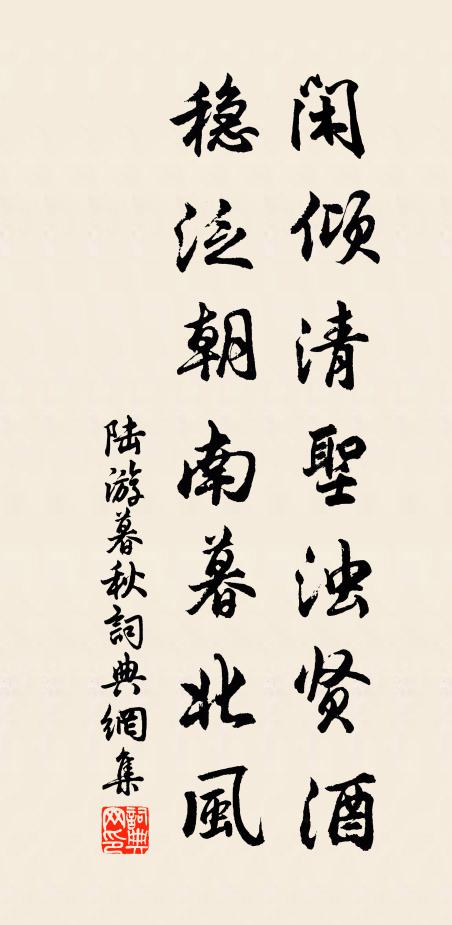 闲倾清聖浊贤酒
稳泛朝南暮北風
陆游暮秋詞典網集
詞典网印